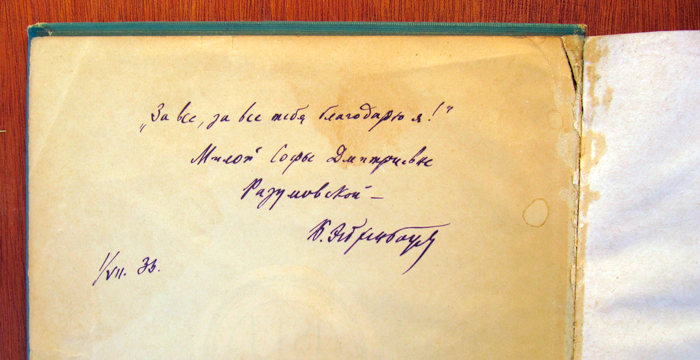 „За все, за все тебя благодарю я!"
Милой Софье Дмитриевне
Разумовской –
Б. Эйхенбаум
1/VII. 33.